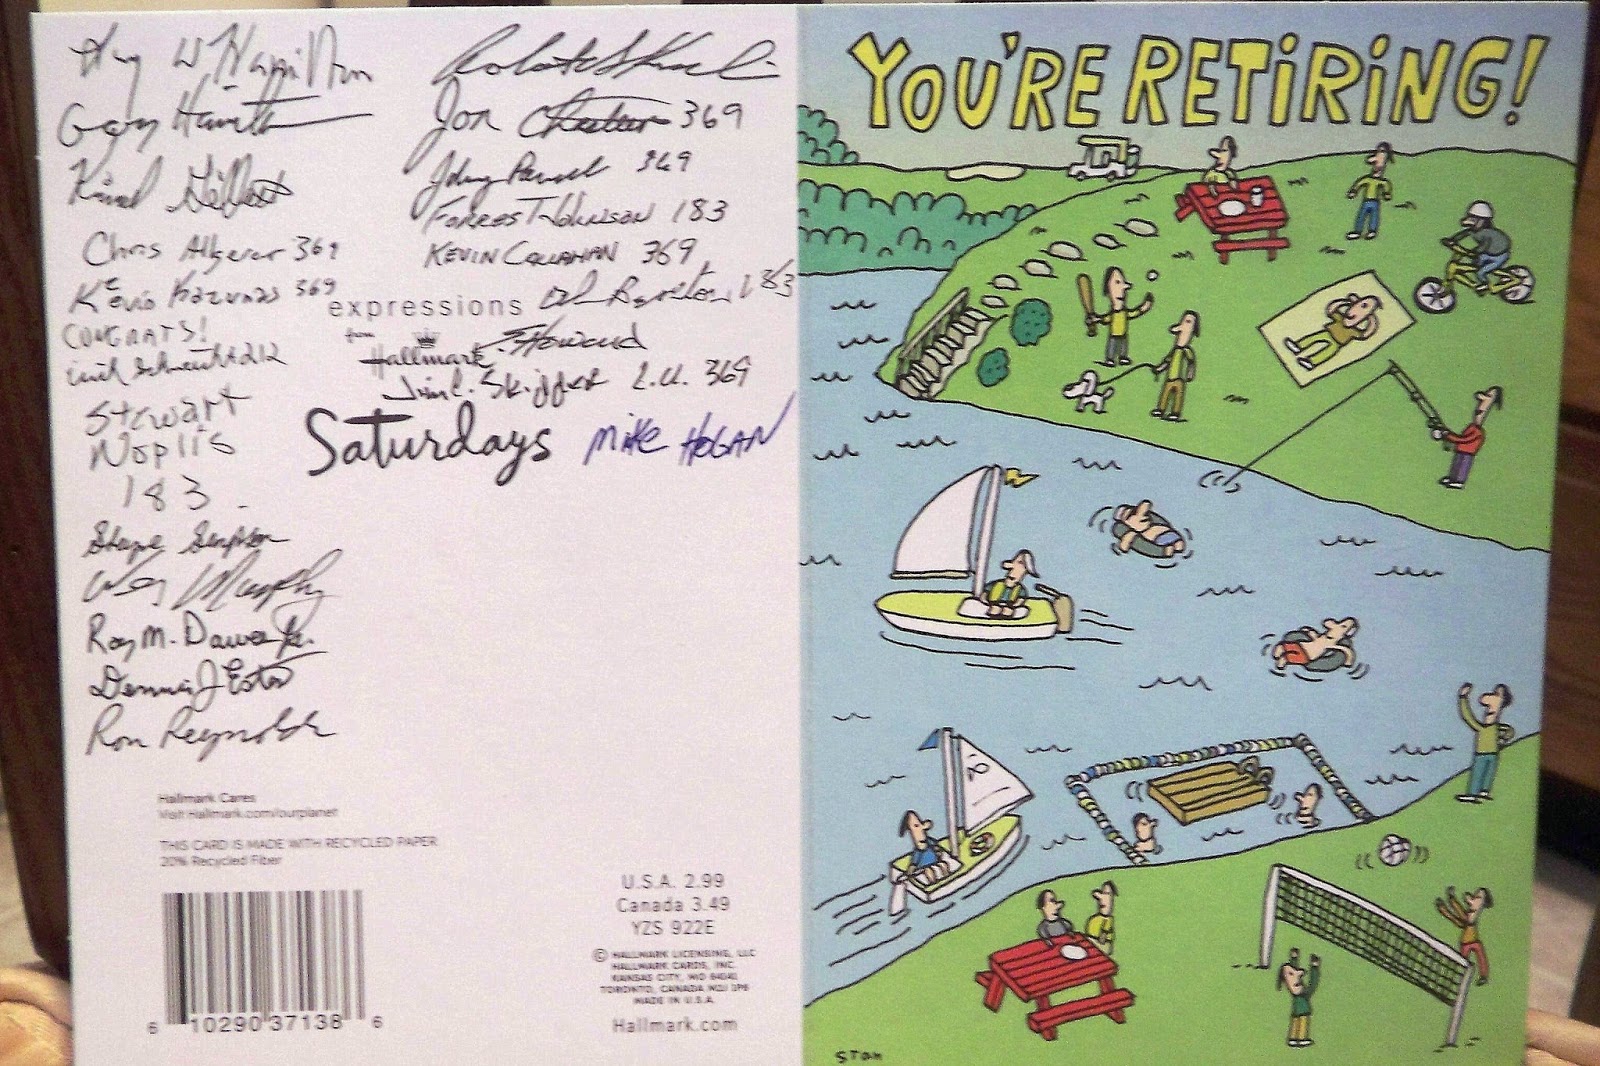 Gary
Chris Algerer 369
Kevin 369
CONGRATS!
212
Stewart
Noplis
183
Murphy
Roy M. Dawes Jr.
Dennis J Estes
Ron Reynolds
369
Jon 369
Johnny 369
Forrest Johnson 183
KEVIN CALLAHAN 369
183
expressions
from
Hallmark
Howard
Jim C. Skiffer L.U. 369
Saturdays
MIKE HOGAN
Hallmark Cares
Visit Hallmark.com/ourplanet
THIS CARD IS MADE WITH RECYCLED PAPER
20% Recycled Fiber
6 10290 37138 6
U.S.A. 2.99
Canada 3.49
YZS 922E
© HALLMARK LICENSING, LLC
HALLMARK CARDS, INC.
KANSAS CITY, MO 64141
TORONTO, CANADA M2J 1P6
MADE IN U.S.A.
Hallmark.com
YOU'RE RETIRING!
STAN